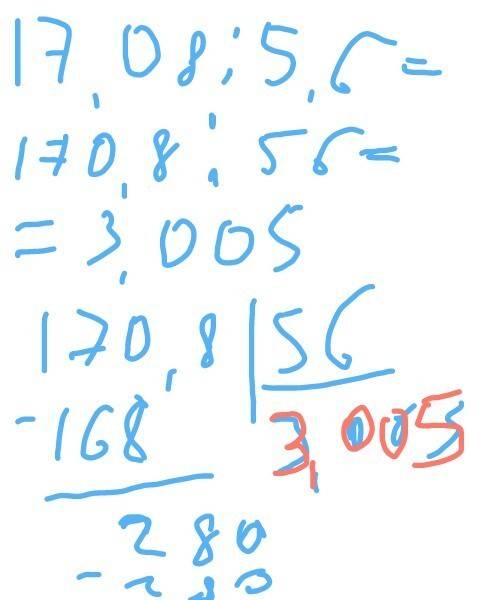 17,08 : 5,6 =
170,8 : 56 =
= 3,005
170,8 | 56
- 168 3,005
280
- 280